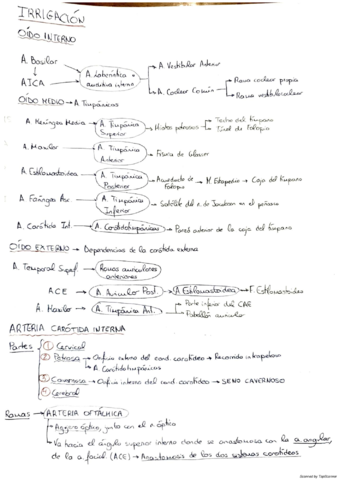 IRRIGACIÓN
OÍDO INTERNO
A. Basilar
AICA
A. Laberíntica o Auditiva interna
A. Vestibular Anterior
A. Coclear Común
Rama coclear propia
Rama vestibulococlear
OÍDO MEDIO → A. Timpánicas
A. Meníngea Media → A. Timpánica Superior → Hiatos petrosos
Techo del tímpano
Túnel de Falopio
A. Maxilar → A. Timpánica Anterior → Fisura de Glaser
A. Estilomastoidea → A. Timpánica Posterior → Acueducto de Falopio → M. Estapedio → Caja del tímpano
A. Faríngea Asc. → A. Timpánica Inferior → Satélite del n. de Jacobson en el peñasco
A. Carótida Int. → A. Carótidotimpánicas → Pared anterior de la caja del tímpano
OÍDO EXTERNO → Dependencias de la carótida externa
A. Temporal Superf. → Ramas auriculares anteriores
ACE → A. Auricular Post. → A. Estilomastoidea → F. Estilomastoideo
A. Maxilar → A. Timpánica Ant.
Parte inferior del CAE
Pabellón auricular
ARTERIA CARÓTIDA INTERNA
Partes
① Cervical
② Petrosa → Orificio externo del cond. carotídeo → Recorrido intrapetroso
→ A. Carótidotimpánicas
③ Cavernosa → Orificio interno del cond. carotídeo → SENO CAVERNOSO
④ Cerebral
Ramas → ARTERIA OFTÁLMICA
Agujero óptico, junto con el n. óptico
Va hacia el ángulo superior interno donde se anastomosa con la a. angular
de la a. facial (ACE) → Anastomosis de los dos sistemas carotídeos
Scanned by TapScanner